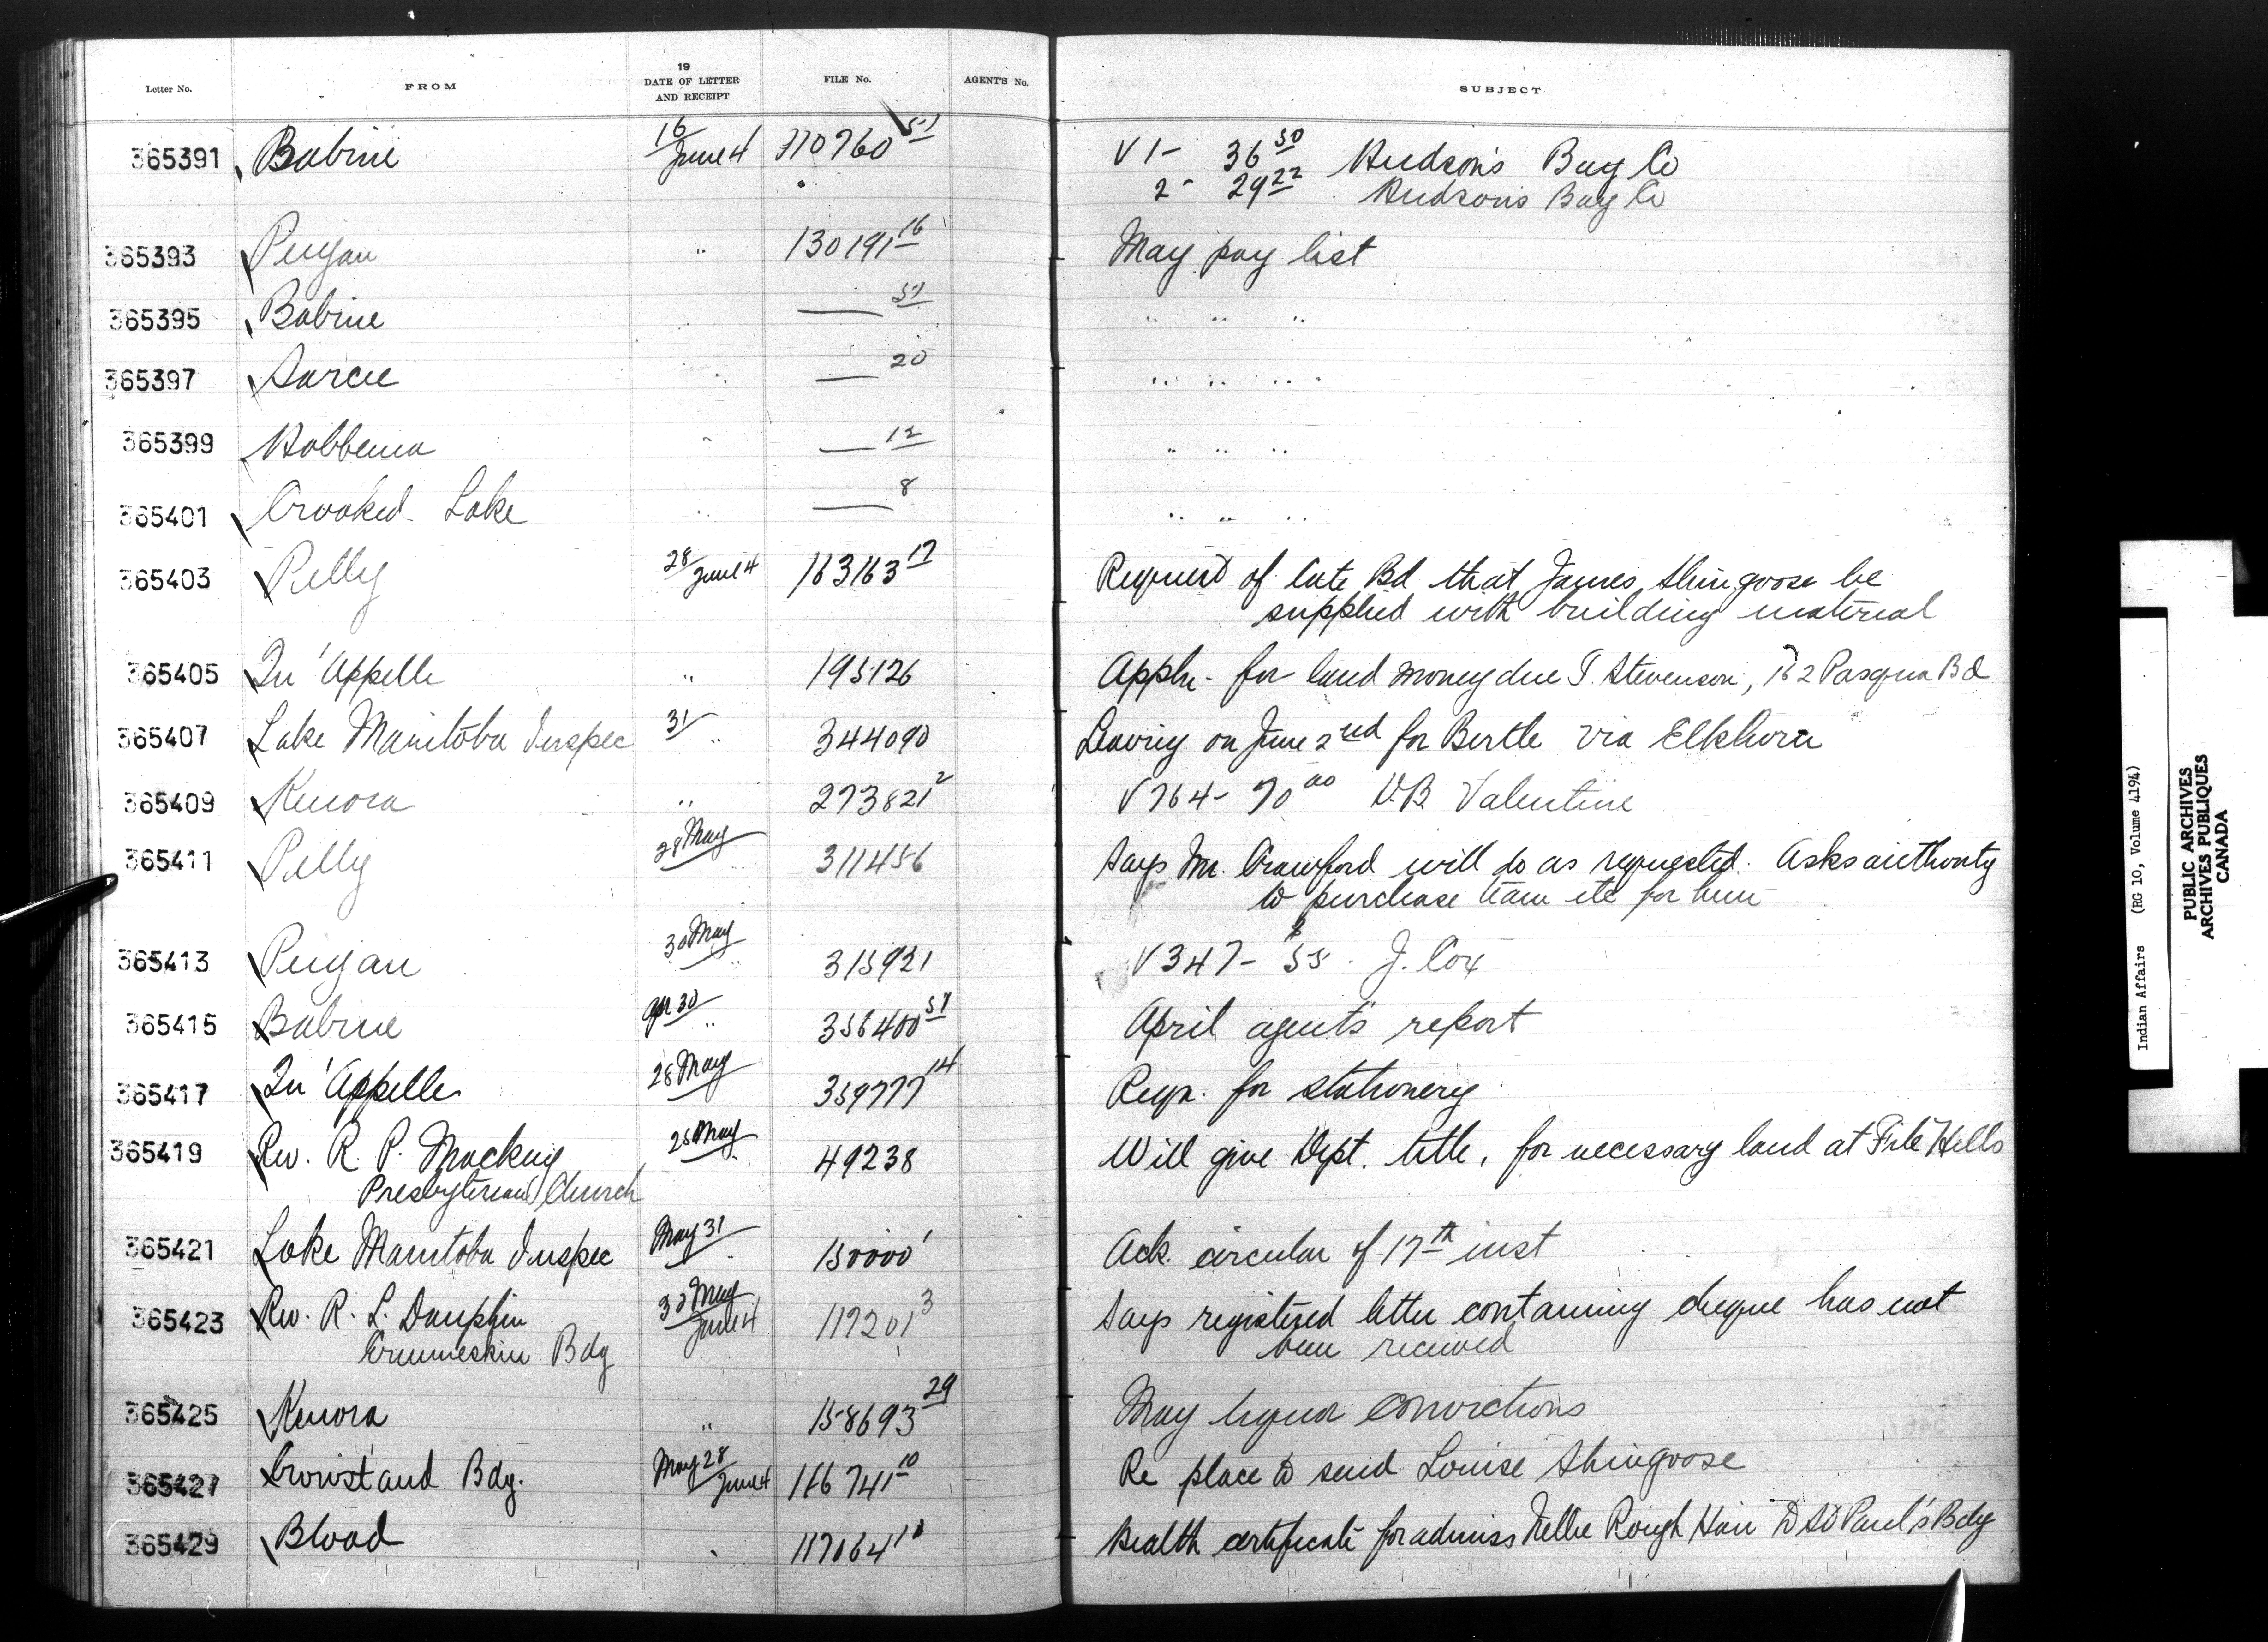 Letter No. FROM 19 DATE OF LETTER AND RECEIPT FILE No. AGENT'S No. SUBJECT
365391 Babine 16/June 4 110760 51 V 1- 36 50 Hudson's Bay Co
2- 29 22 Hudson's Bay Co
365393 Peigan " 130191 16 May pay list
365395 Babine " — 51 " " "
365397 Sarcee " — 20 " " "
365399 Hobbema " — 12 " " "
365401 Crooked Lake " — 8 " " "
365403 Pelly 28/June 4 163163 17 Request of Cote Bd that James Shingoose be
supplied with building material
365405 Qu'Appelle " 195126 Appln. for land money due T. Stevenson, 162 Pasqua Bd
365407 Lake Manitoba Inspec 31/ " 344090 Leaving on June 2nd for Birtle via Elkhorn
365409 Kenora " 273821 2 V 764- 70 00 D.B. Valentine
365411 Pelly 28 May " 311456 Says Mr. Crawford will do as requested. Asks authority
to purchase team etc for him
365413 Peigan 30 May " 315921 V 347- $55. J. Cox
365415 Babine Apr 30 " 356400 51 April agent's report
365417 Qu'Appelle 28 May 359777 14 Reqn. for stationery
365419 Rev. R. P. Mackay 28 May " 49238 Will give Dept. title, for necessary land at File Hills
Presbyterian Church
365421 Lake Manitoba Inspec May 31 " 150000 1 Ack. circular of 17th inst
365423 Rev. R. L. Dauphin 30 May June 4 117201 3 Says registered letter containing cheque has not
Ermineskin Bdg been received
365425 Kenora " 158693 29 May liquor convictions
365427 Crowstand Bdg. May 28/June 4 116741 10 Re place to send Louise Shingoose
365429 Blood " 117064 10 Health certificate for admiss Nellie Rough Hair to St Paul's Bdg
Indian Affairs (RG 10, Volume 4194)
PUBLIC ARCHIVES
ARCHIVES PUBLIQUES
CANADA